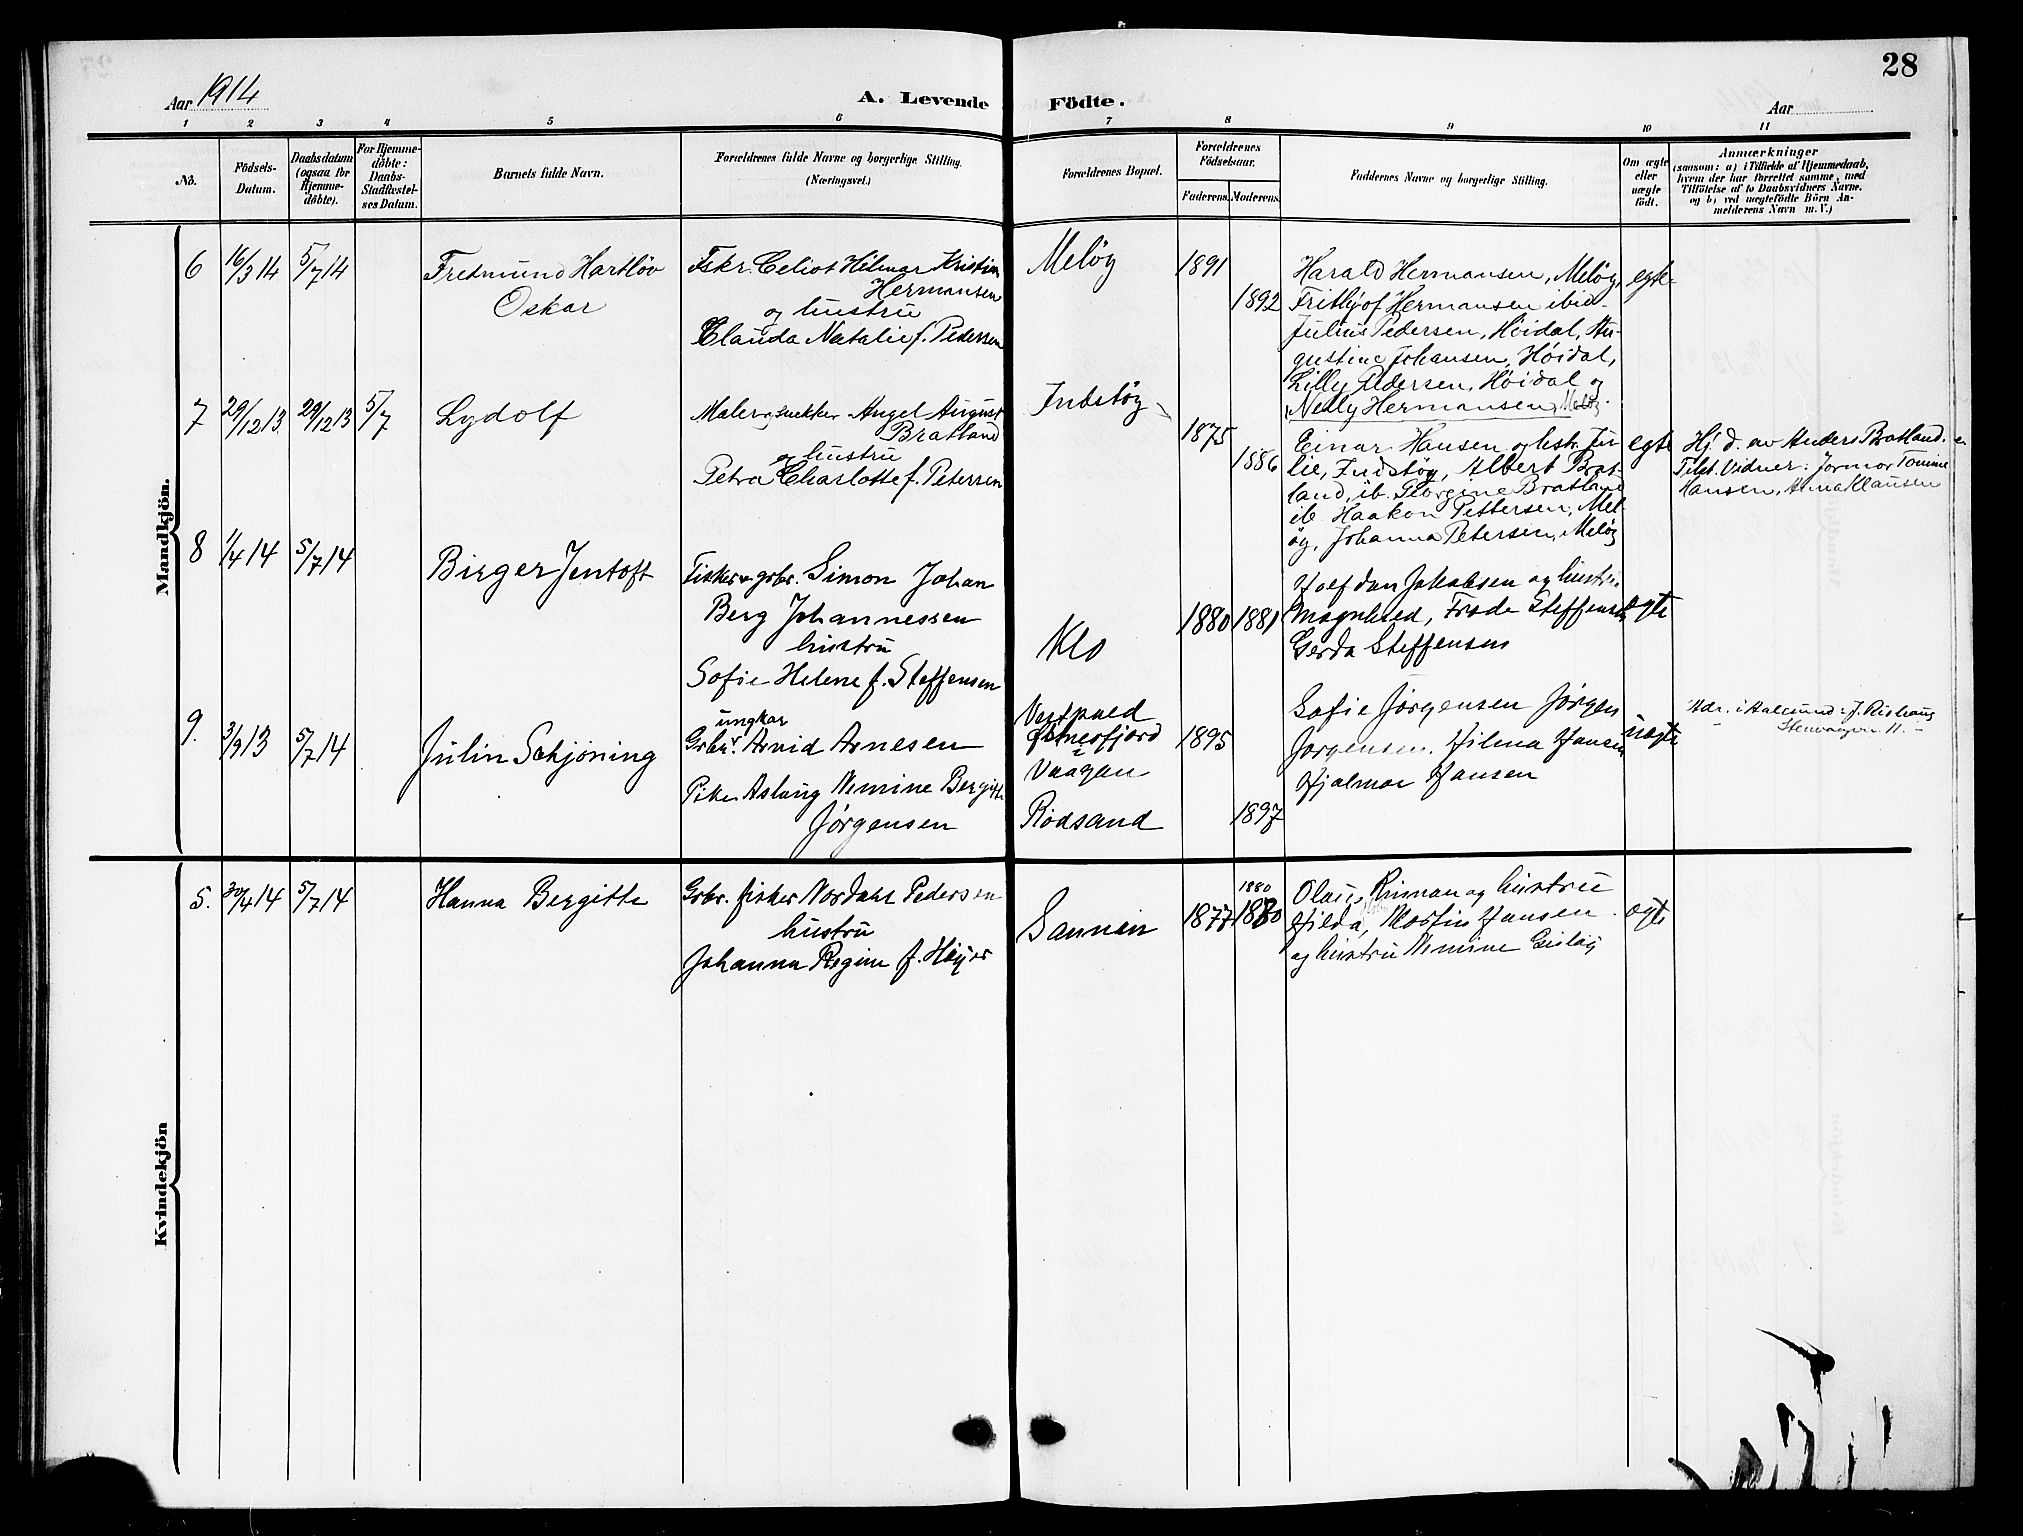 28
Aar 1914
A. Levende Födte.
Aar
1 2 3 4 5 6 7 8 9 10 11
No.
Födsels-Datum.
Daabsdatum (ogsaa for Hjemmedöbte).
For Hjemmedöbte: Daabs-Stadfæstelses Datum.
Barnets fulde Navn.
Forældrenes fulde Navne og borgerlige Stilling.
(Næringsvei.)
Forældrenes Bopæl.
Forældrenes Födselsaar.
Faderens. Moderens.
Faddernes Navne og borgerlige Stilling.
Om ægte eller uægte födt.
Anmærkninger
(saasom: a) i Tilfælde af Hjemmedaab,
hvem der har forrettet samme, med
Tilföielse af to Daabsvidners Navne.
og b) ved uægtefödte Börn An-
melderens Navn m. V.)
Mandkjön.
6 16/3 14 5/7 14
Fredmund Hartløv
Oskar
Fskr. Celiot Hilmar Kristian
Hermansen
og hustru
Clauda Natalie f. Pedersen
Meløy
1891
1892
Harald Hermansen, Meløy,
Frithjof Hermansen ibid.
Julius Pedersen, Høidal, Au-
gustine Johansen, Høidal,
Lilly Pedersen, Høidal og
Nelly Hermansen, Meløy.
egte
7 29/12 13. 29/12 13 5/7
Lydolf
Maler og snekker Angel August
Bratland
og hustru
Petra Charlotte f. Petersen
Indstøy
1875
1886
Einar Hansen og hstr. Ju-
lie, Indstøy, Albert Brat-
land, ib. Georgine Bratland
ib. Haakon Pettersen, Mel-
øy, Johanna Petersen, Meløy
egte
Hj. d. av Anders Bratland.
Tilst. Vidner: Jormor Tomine
Hansen, Anna Klausen
8 1/4 14 5/7 14
Birger Jentoft
Fisker & grbr. Simon Johan
Berg Johannessen
hustru
Sofie Helene f. Steffensen
Klo
1880 1881
Halfdan Jakobsen og hustru
Magnhild, Frode Steffensen
Gerda Steffensen
egte
9. 3/9 13 5/7 14
Julin Schjøning
ungkar
Grbr. Arnid Arnesen
Pike Aslaug Nemine Bergitte
Jørgensen
Vaagen
Rødsand
1895
1897
Sofie Jørgensen Jørgen
Jørgensen. Hilma Hansen
Hjalmar Hansen
uægte
Adr. i Aalesund: J. Rishaug
Stenvaagen 11.
Kvindekjön
5. 30/4 14 5/7 14
Hanna Bergitte
Grbr. fisker Nordahl Pedersen
hustru
Johanna Regine f. Høyer
Sannin
1877 1880
1880
Olai Kinnan og hustru
Hilda, Martin Hansen
og hustru Nemine Guslöy
egte